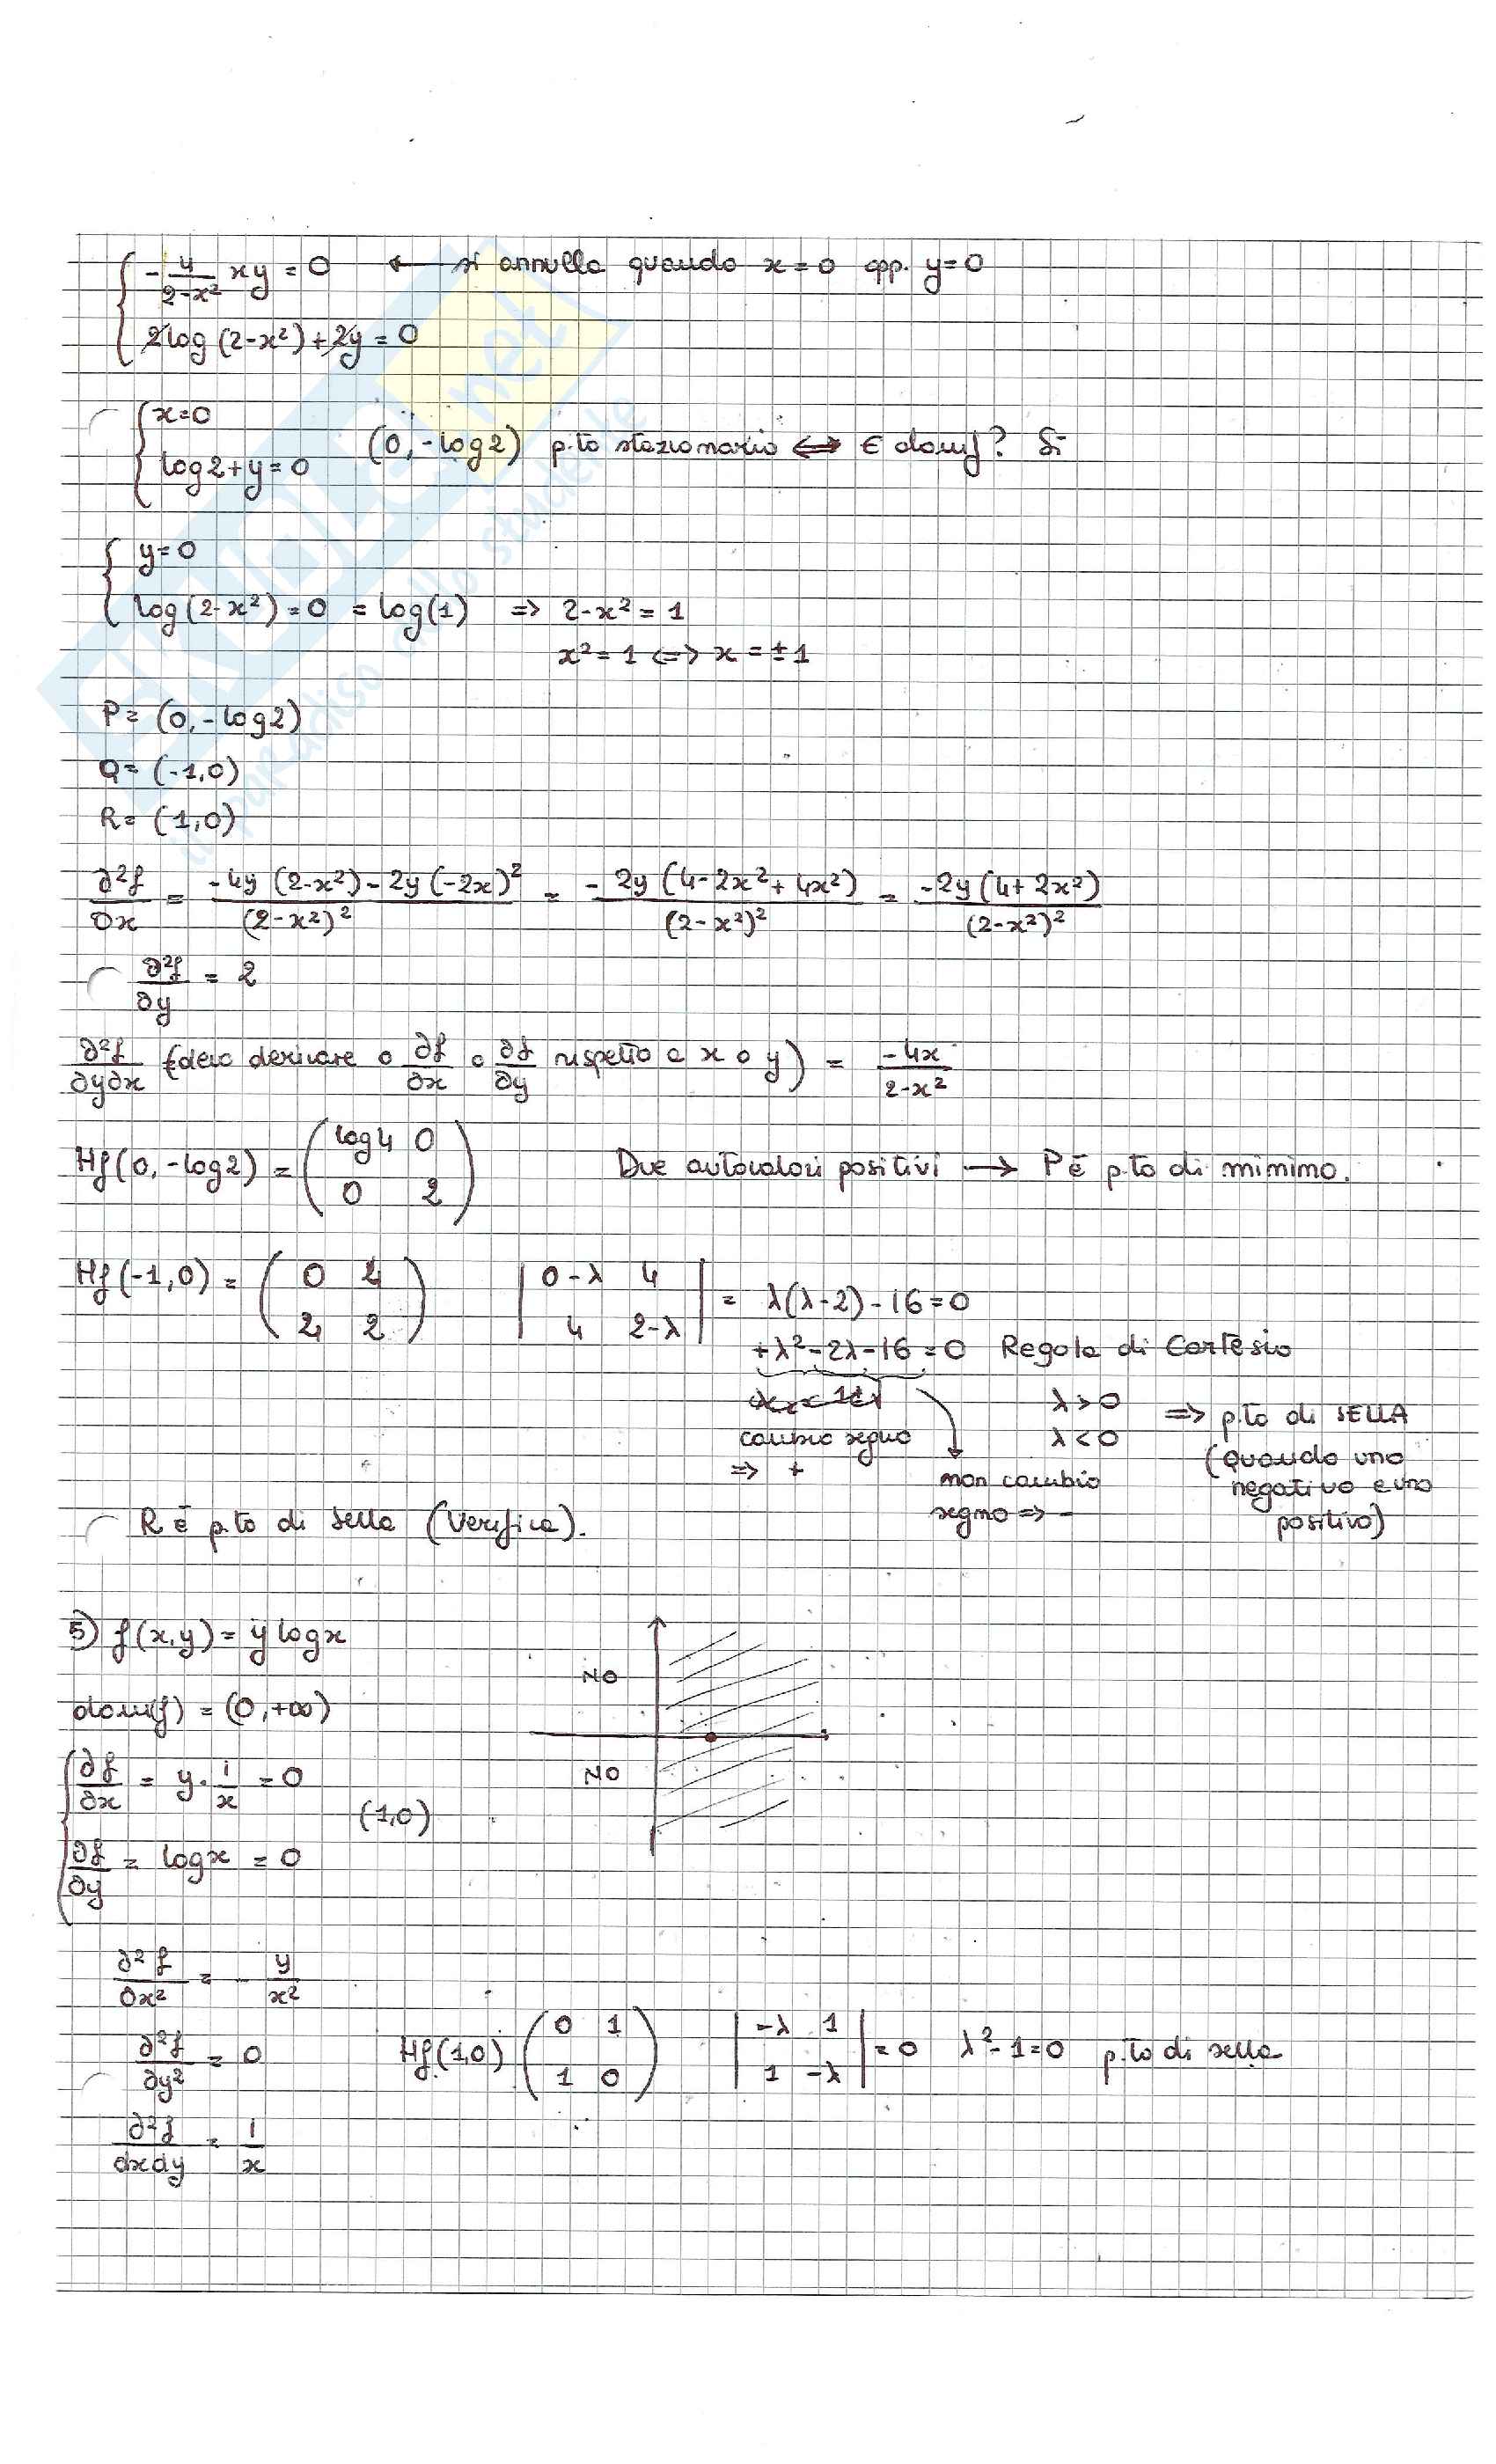 - 4/(2-x²) xy = 0 ← si annulla quando x=0 opp. y=0
2log(2-x²)+2y=0
x=0
log2+y=0 (0,-log2) p.to stazionario ⟺ ∈ domf? Sì
y=0
log(2-x²)=0 = log(1) => 2-x²=1
x²=1 <=> x=±1
P=(0,-log2)
Q=(-1,0)
R=(1,0)
∂²f/∂x = (-4y(2-x²)-2y(-2x)²)/(2-x²)² = - 2y(4-2x²+4x²)/(2-x²)² = -2y(4+2x²)/(2-x²)²
∂²f/∂y = 2
∂²f/∂y∂x (devo derivare o ∂f/∂x o ∂f/∂y rispetto a x o y) = -4x/(2-x²)
Hf(0,-log2) = (log4 0
0 2) Due autovalori positivi → P è p.to di minimo.
Hf(-1,0) = (0 4
4 2) |0-λ 4
4 2-λ| = λ(λ-2)-16=0
+λ²-2λ-16=0 Regola di Cartesio
cambio segno => +
non cambio segno => -
λ>0
λ<0
=> p.to di SELLA
(quando uno
negativo e uno
positivo)
R è p.to di sella (Verifica).
5) f(x,y)= y logx
NO
dom(f) = (0,+∞)
∂f/∂x = y·1/x = 0
NO
(1,0)
∂f/∂y = logx = 0
∂²f/∂x² = - y/x²
∂²f/∂y² = 0 Hf(1,0) (0 1
1 0) |-λ 1
1 -λ| = 0 λ²-1=0 p.to di sella
∂²f/dxdy = 1/x
SKUOLA.net
il paradiso dello studente